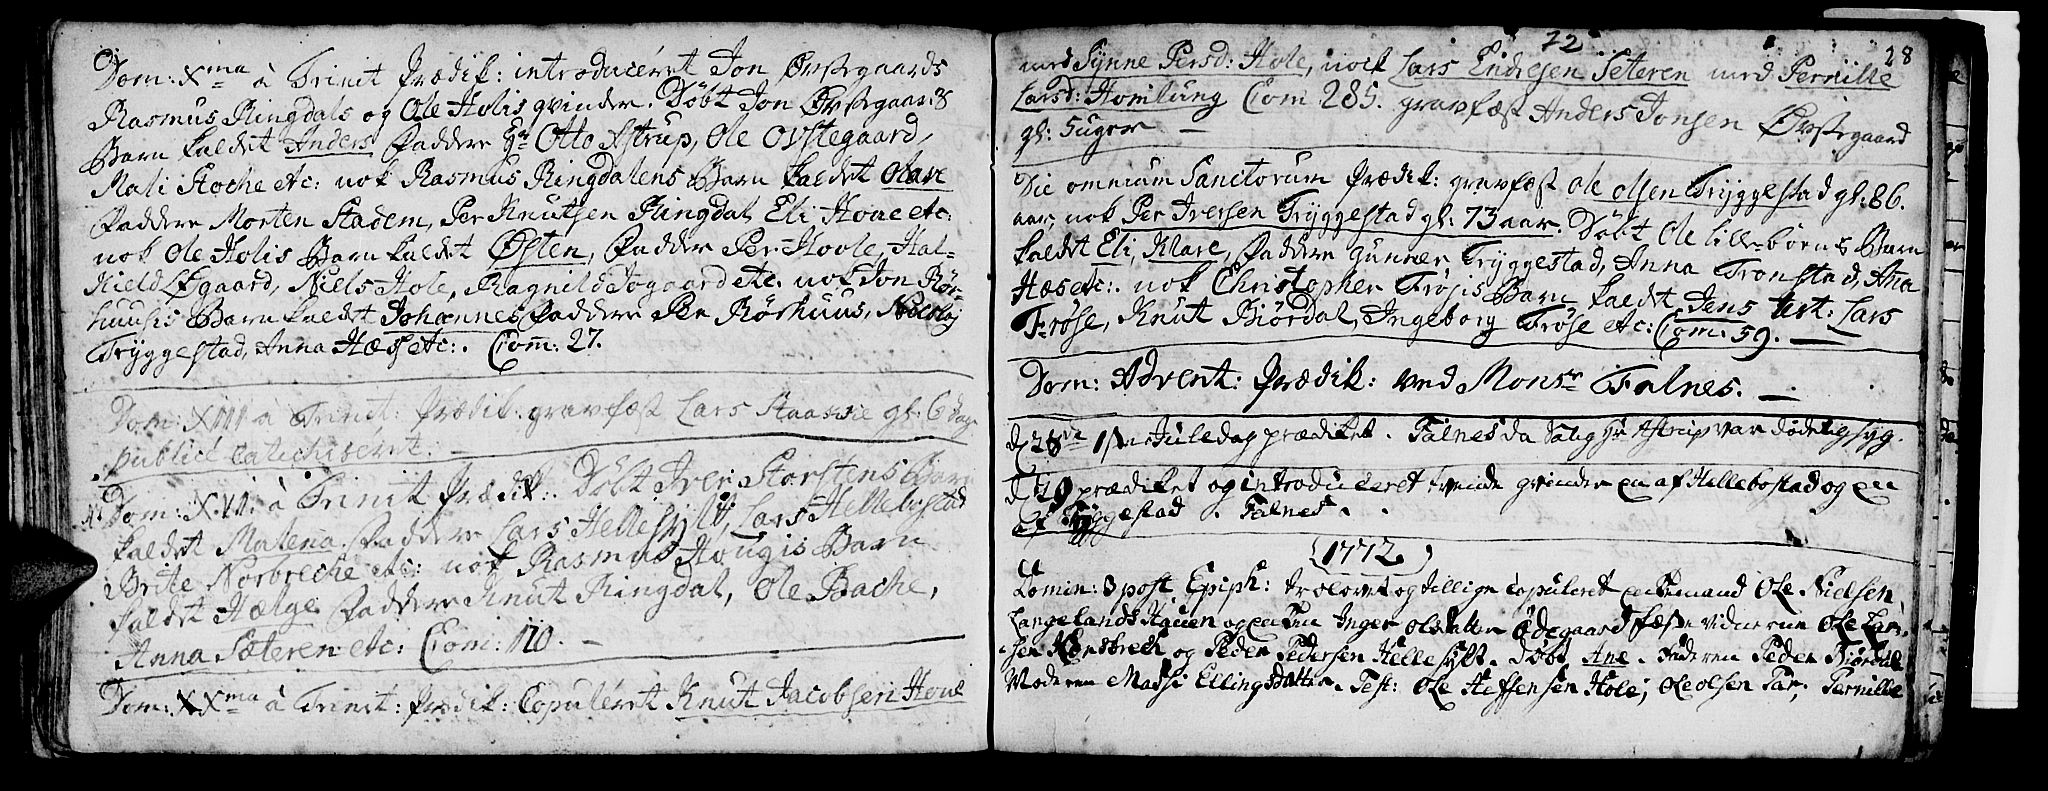 Dom: Xma à Trinit Prædik: introduceret Jon Øvstegaards
Rasmus Ringdals og Ole Holis qvinder. Døbt Jon Øvstegaards
Barn kaldet Anders Faddere Hr Otto Astrup, Ole Ovstegaard,
Mali Stoche etc: nok Rasmus Ringdalens Barn kaldet Olave
Faddere Morten Stadem, Per Knutsen Ringdal, Eli Hove etc:
nok Ole Holis Barn kaldet Østen, Faddere Per Hoole, Hal-
kield Øgaard, Niels Hole, Ragnild Øogaard etc. nok Jon Rör-
huusis Barn kaldet Johannes Faddere Per Rörhuus, Nicolaj
Tryggestad, Anna Hæs etc:. Com: 27.
Dom: XIII à Trinit: Prædik: gravfæst Lars Staavie gl: 6 dage
publicè catechiseret. —
Dom: XVII: à Trinit Prædik: Døbt Iver Storstens Barn
kaldet Malena. Faddere Lars Hellesylt, Lars Hellebostad
Brite Norbreche etc: nok Rasmus Hougis Barn
kaldet Hælge Faddere Knut Ringdal, Ole Bache,
Anna Sæteren etc: Com: 110. —
Dom: XXma à Trinit: Prædik: Copuleret Knut Jacobsen Hove
72
28
med Synne Persd: Hole, nok Lars Endresen Seteren med Pernille
Larsd: Homlung Com 285. gravfæst Anders Jonsen Øvstegaard
gl: 5 uger —
Die omnium Sanctorum Prædik: gravfæst Ole Olsen Tryggestad gl: 86.
aar, nok Per Iversen Tryggestad gl: 73 aar. Døbt Ole Lillebørns Barn
kaldet Eli, Mare, Faddere Gunner Tryggestad, Anna Tronstad, Ana
Hæs etc:. nok Christopher Frøsis Barn kaldet Jens test: Lars
Frøse, Knut Biørdal, Ingeborg Frøse etc: Com: 59. —
Dom: Advent: Prædik: ved Monsr Falnes. —
d 28de 1ste Juledag prædiket. Falnes da Salig Hr Astrup var dødelig syg.
d 29 prædiket og introduceret tvende qvinder en af Hellebostad og en
af Tryggestad. Falnes.
1772
Domin: 3 post Epiph: trolovet og tillige copuleret Ole Nielsen
Langelands Hauen og Inger Olsdatter Ødegaard Vidneren Ole Lar-
sen Kornsbrech og Peder Pedersen Hellesylt. Døbt Ane. Faderen Peder Biørdal
Moderen Massi Ellingsdatter. Test: Ole Steffensen Hole, Ole Olsen Tar, Pernille